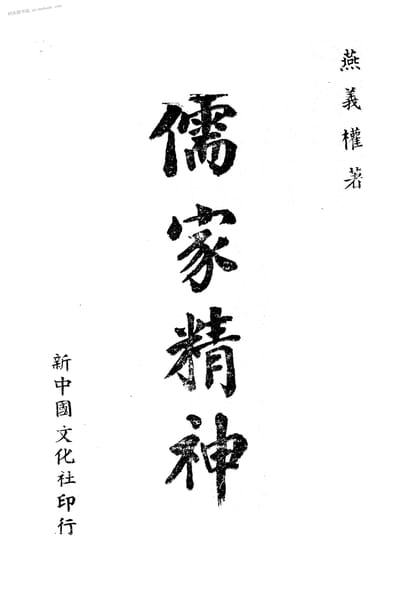 燕義權著
儒家精神
新中國文化社印行